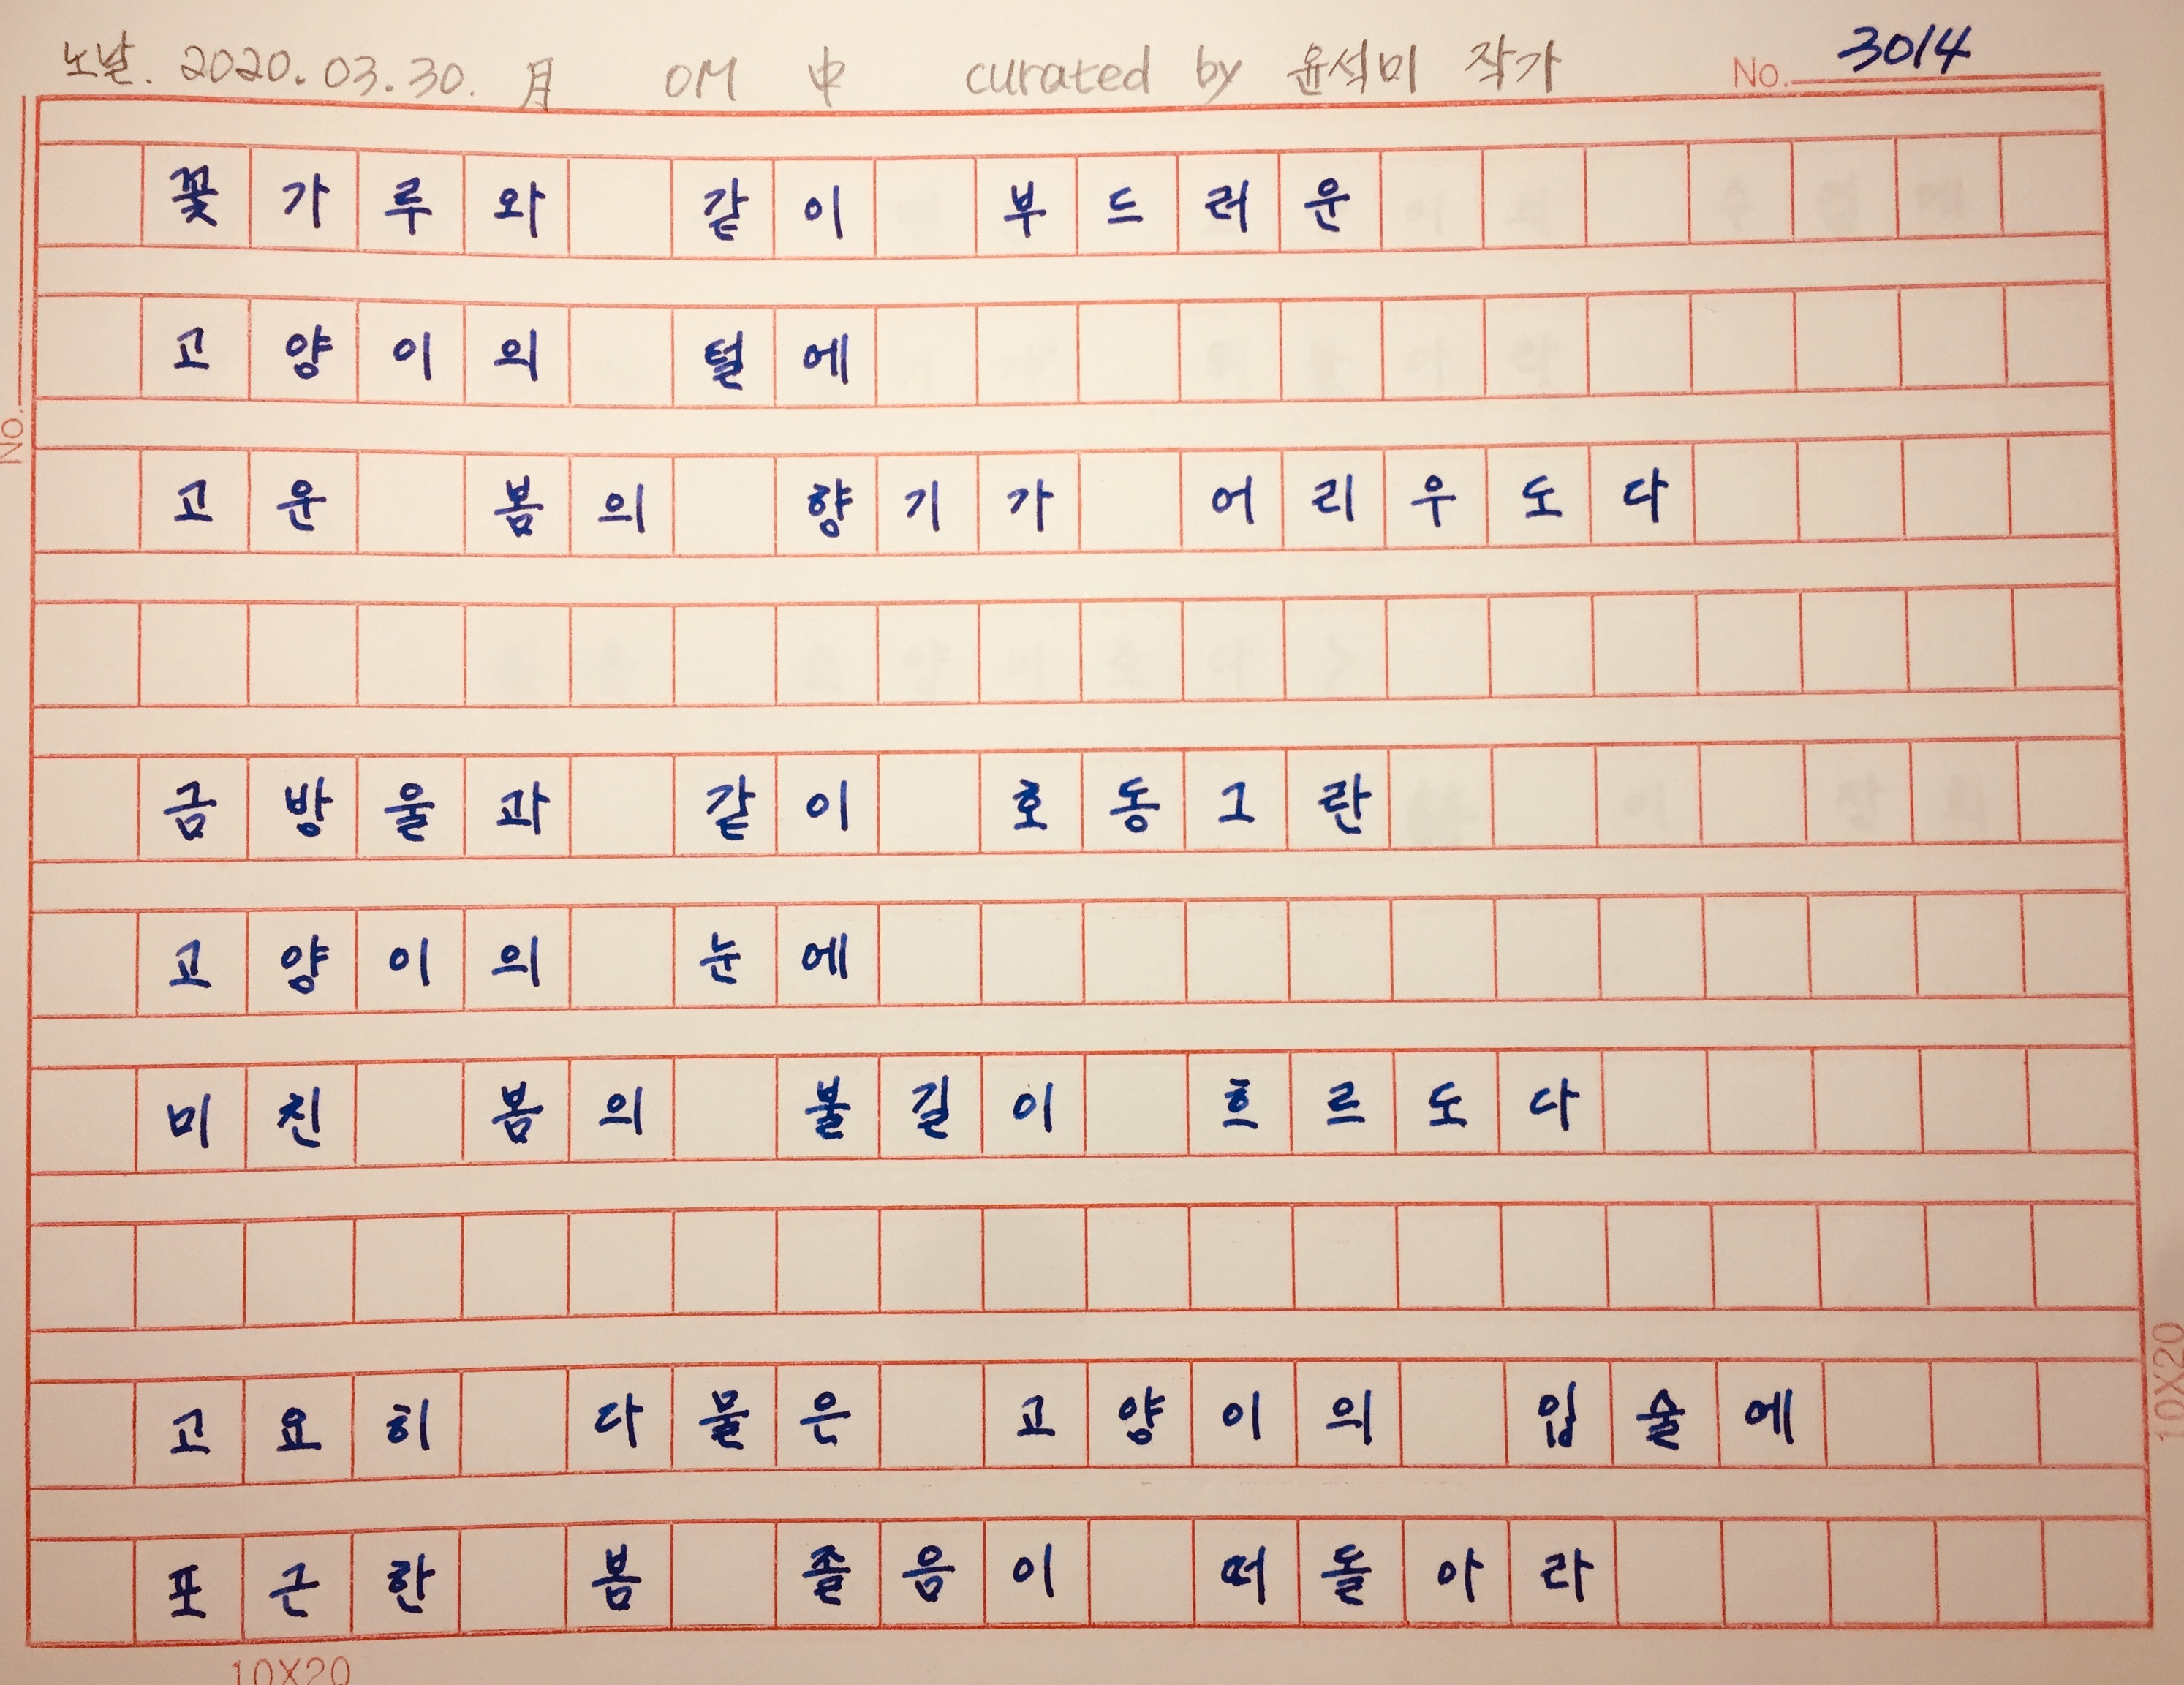 노날. 2020.03.30. 月 OM 中 curated by 윤석미 작가 No. 3014
꽃가루와 같이 부드러운
고양이의 털에
고운 봄의 향기가 어리우도다
금방울과 같이 호동그란
고양이의 눈에
미친 봄의 불길이 흐르도다
고요히 다물은 고양이의 입술에
포근한 봄 졸음이 떠돌아라
No.
10X20
10X20